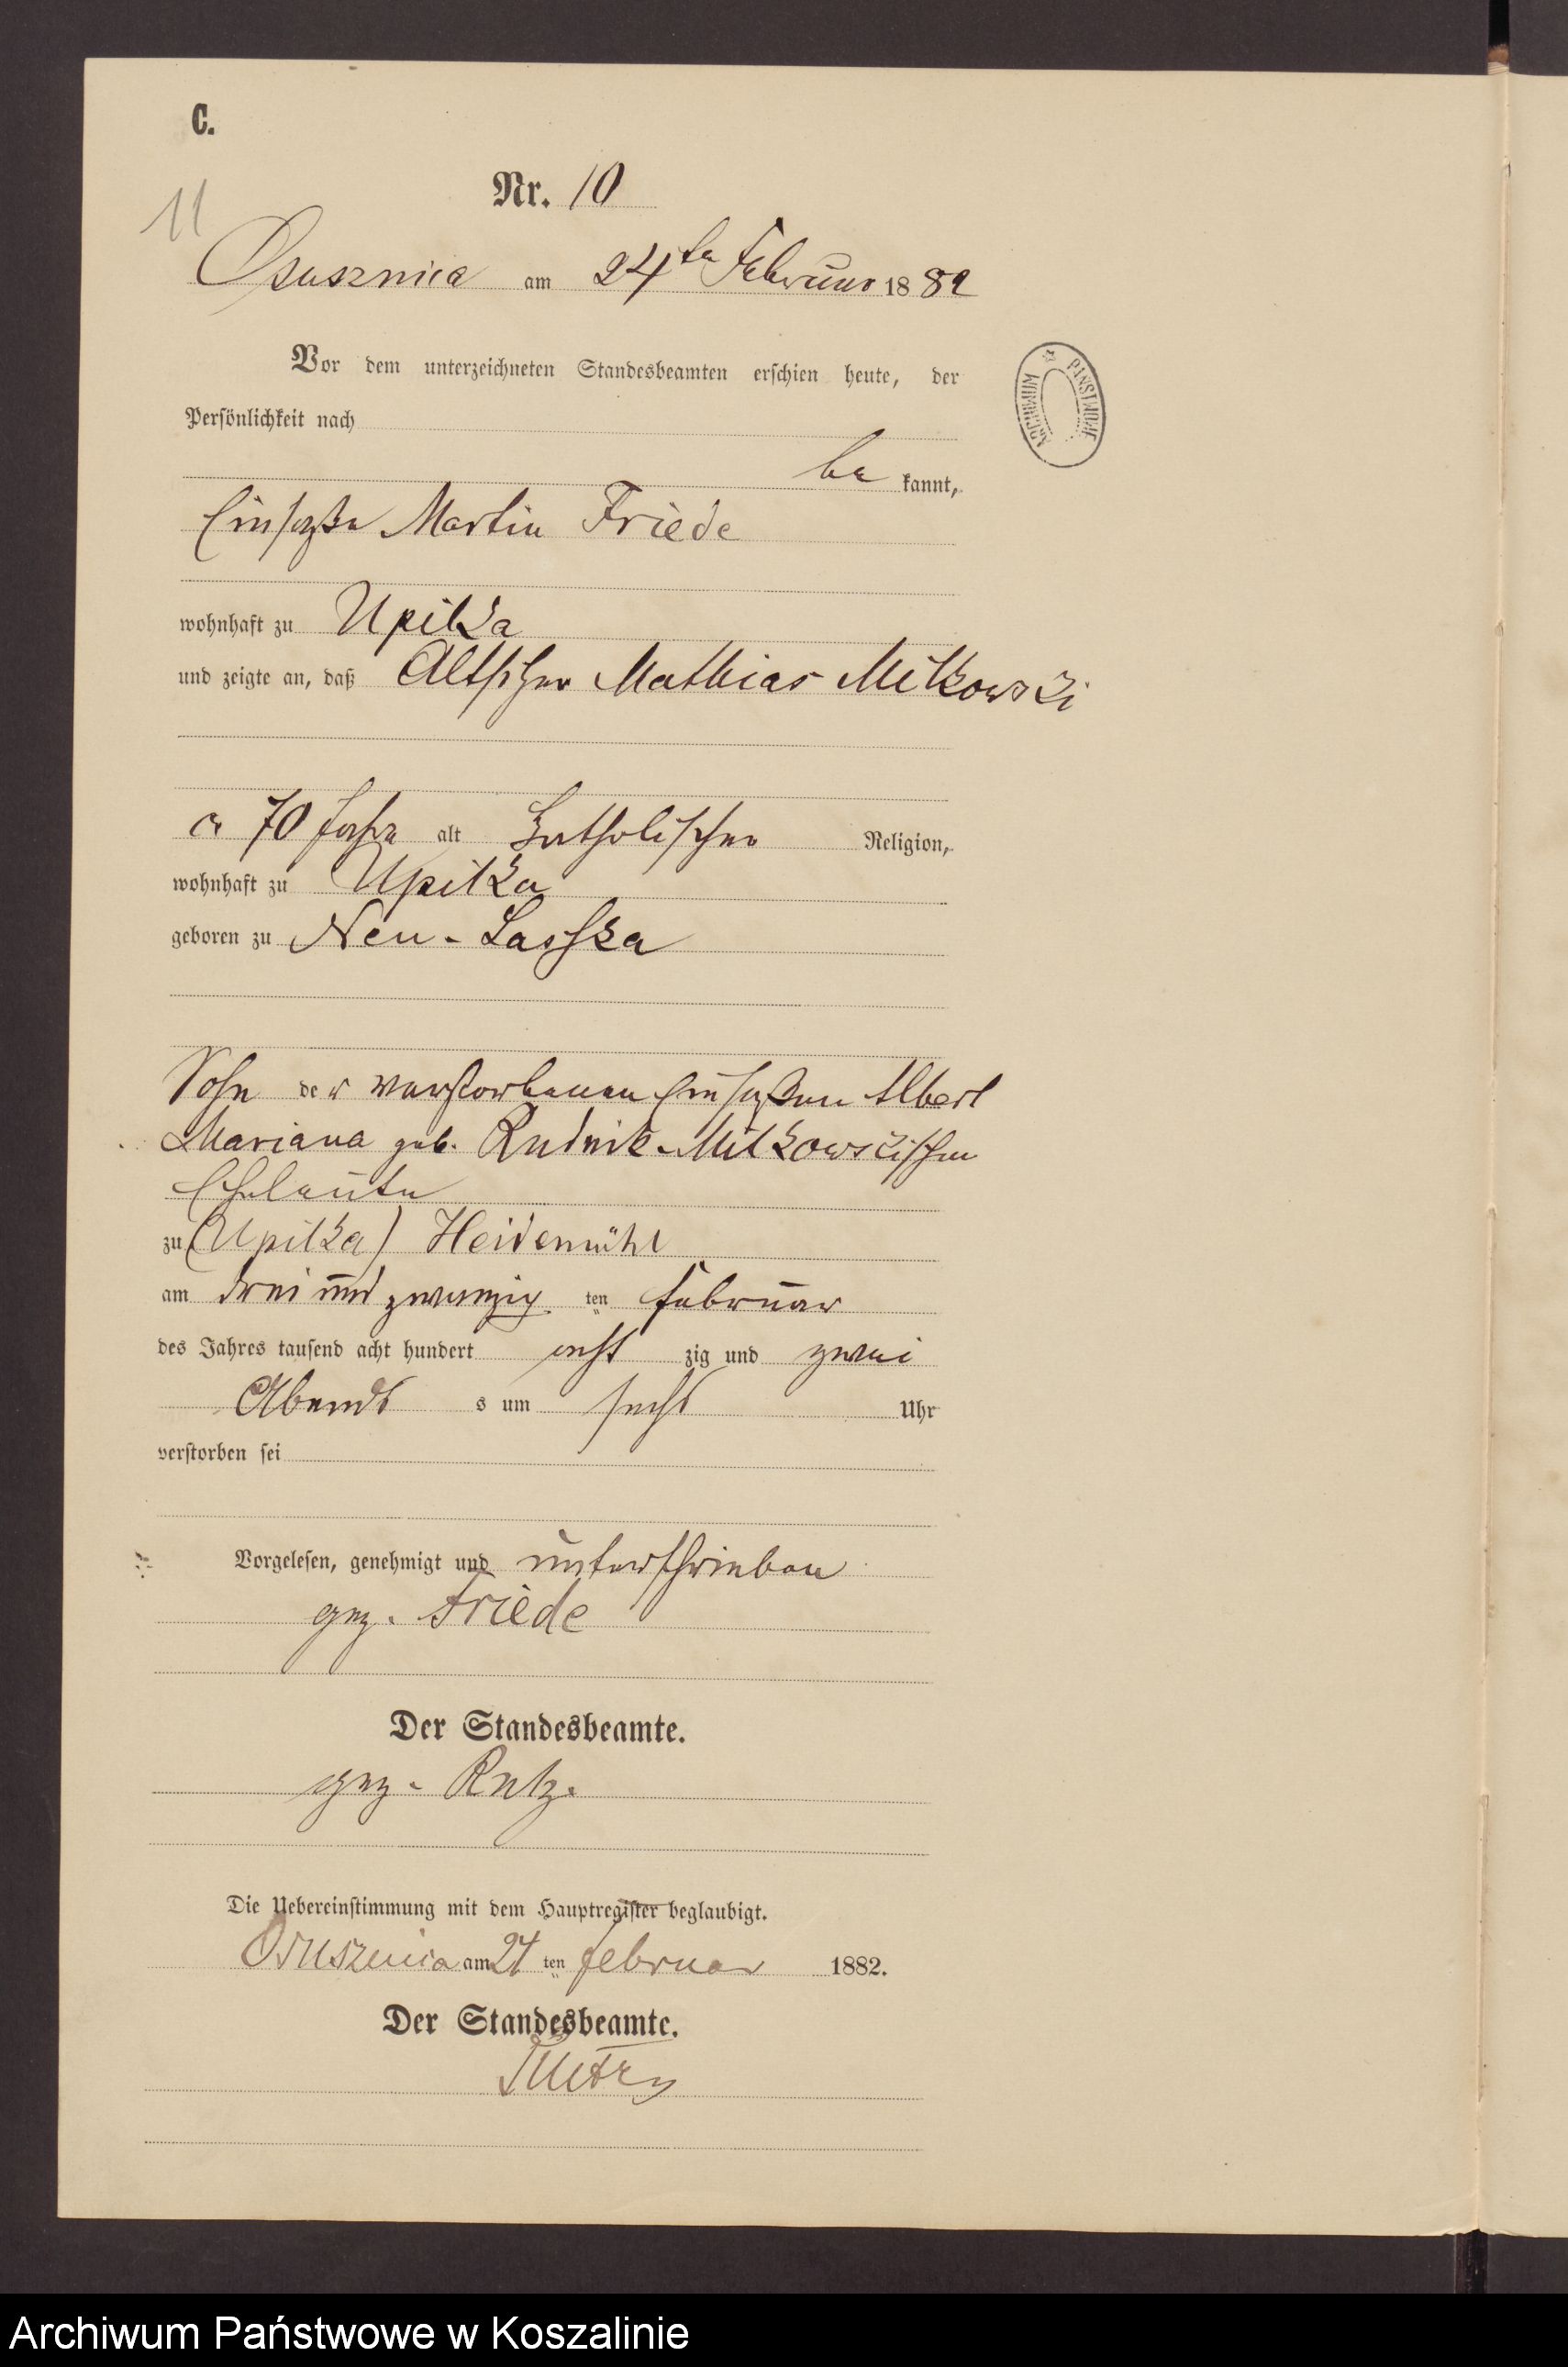 C.
Nr. 10
11
Osusznica am 24te Februar 1882
Vor dem unterzeichneten Standesbeamten erschien heute, der
Persönlichkeit nach
be kannt,
Einsaße Martin Friede
wohnhaft zu Upilka
und zeigte an, daß Altsitzer Mathias Milkowski
70 Jahre alt katholischer Religion,
wohnhaft zu Upilka
geboren zu Neu-Lasska
Sohn der verstorbenen Einsaßen Albert
Mariana geb. Rudnik-Milkowskischen
Eheleute
zu (Upilka) Heidemühl
am drei und zwanzig ten Februar
des Jahres tausend acht hundert acht zig und zwei
Abends s um sechs Uhr
verstorben sei
Vorgelesen, genehmigt und unterschrieben
gez. Friede
Der Standesbeamte.
gez.
Die Uebereinstimmung mit dem Hauptregister beglaubigt.
Osusznica am 24 ten Februar 1882.
Der Standesbeamte.
ARCHIWUM PAŃSTWOWE
Archiwum Państwowe w Koszalinie